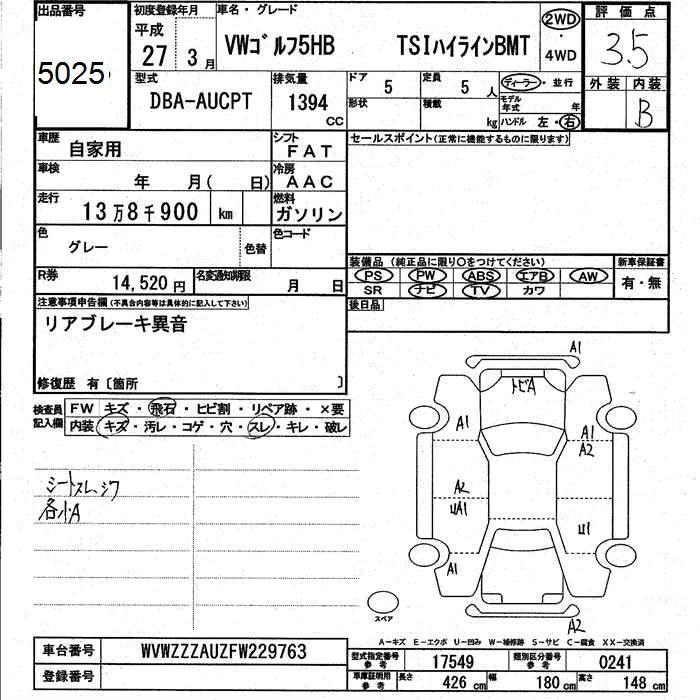 出品番号
5025
初度登録年月
平成
27年 3月
車名・グレード
VWゴルフ5HB TSIハイラインBMT
2WD
・
4WD
評価点
3.5
外装 内装
B
型式
DBA-AUCPT
排気量
1394
CC
ドア
5
定員
5 人
形状
積載
kg
ディーラー・並行
モデル年式 年
ハンドル 左・右
車歴
自家用
シフト
FAT
車検
年 月( 日)
冷房
AAC
走行
13万8千900 km
燃料
ガソリン
色
グレー
色替
色コード
R券
14,520円
名変通知期限
月 日
セールスポイント(正常に機能するものに限ります)
装備品 (純正品に限り○をつけてください)
PS PW ABS エアB AW
SR ナビ TV カワ
新車保証書
有・無
後日品
注意事項申告欄(不具合内容等は具体的に記入して下さい)
リアブレーキ異音
修復歴 有〔箇所 〕
検査員記入欄
FW キズ・飛石・ヒビ割・リペア跡・×要
内装 キズ・汚レ・コゲ・穴・スレ・キレ・破レ
シートスレ、シワ
各小A
A1
トビA
A1
A1
A2
A2
UA1
U1
A1
A2
スペア
A-キズ E-エクボ U-凹み W-補修跡 S-サビ C-腐食 XX-交換済
車台番号
WVWZZZAUZFW229763
登録番号
型式指定番号 参考
17549
類別区分番号 参考
0241
車庫証明用 参考
長さ 426 cm 幅 180 cm 高さ 148 cm